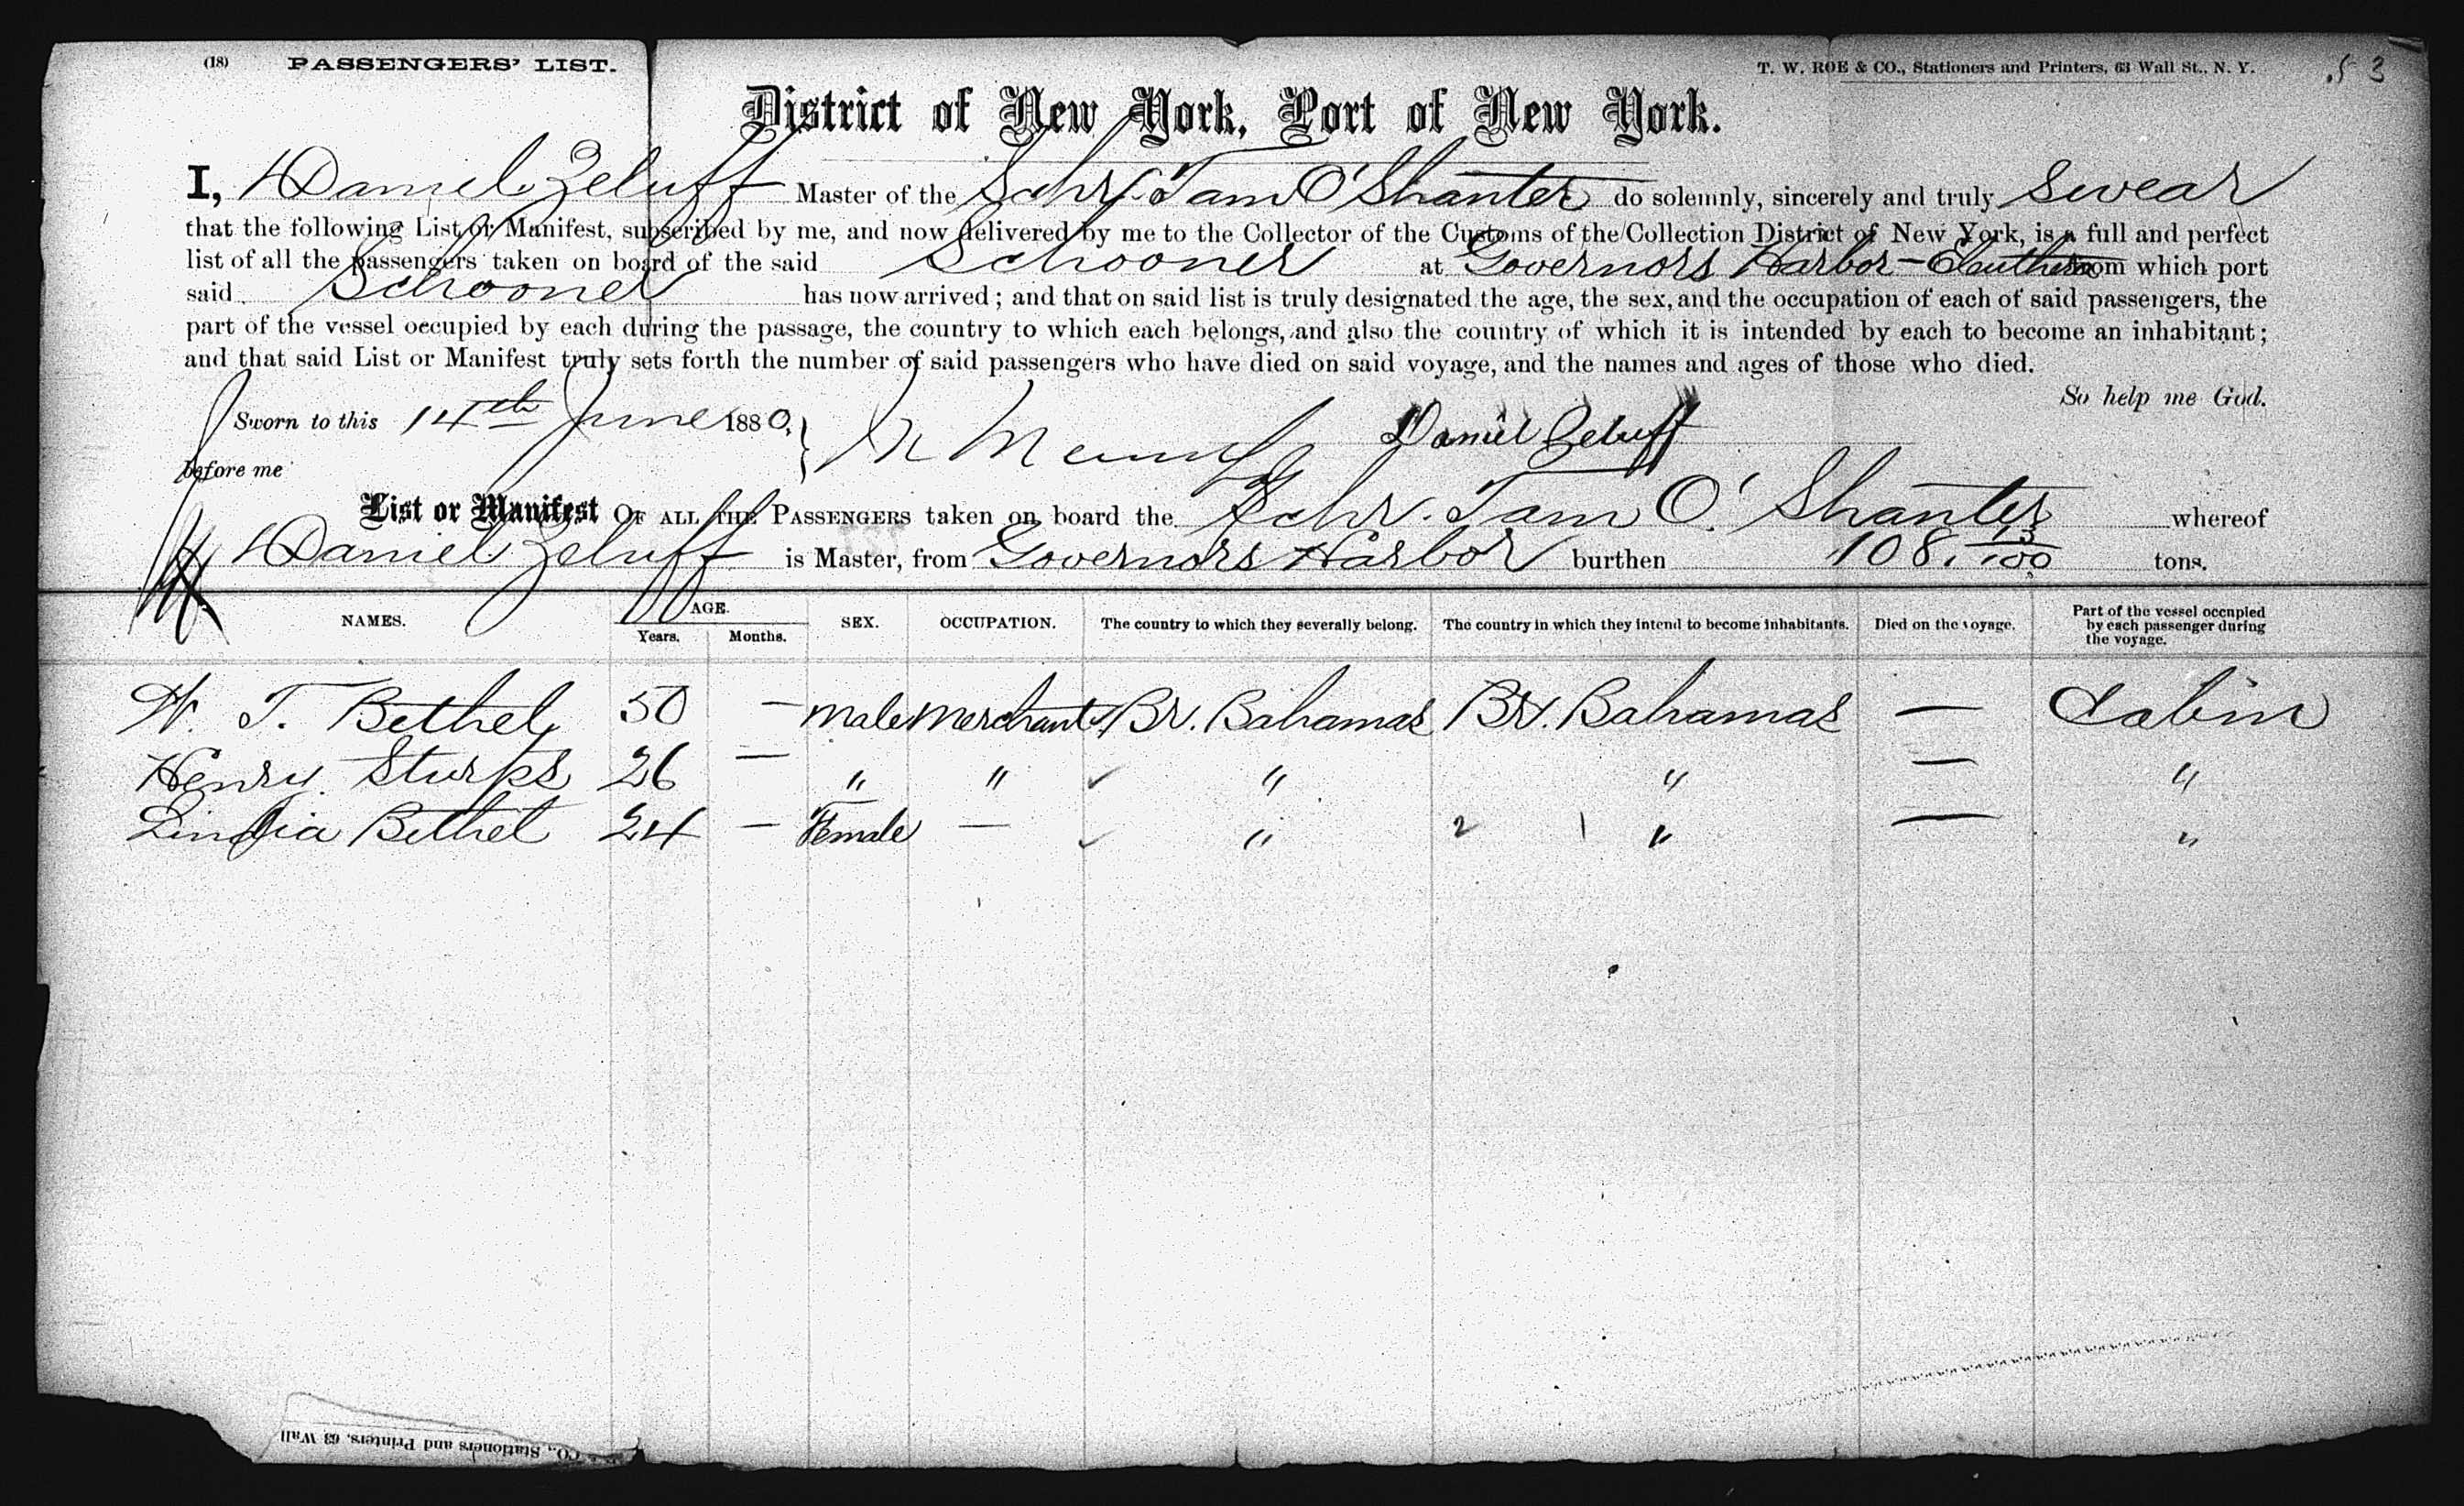 (18) PASSENGERS' LIST.
T. W. ROE & CO., Stationers and Printers, 63 Wall St., N. Y.
53
District of New York, Port of New York.
I, Daniel Zeluff Master of the Schr. Tam O'Shanter do solemnly, sincerely and truly swear
that the following List or Manifest, subscribed by me, and now delivered by me to the Collector of the Customs of the Collection District of New York, is a full and perfect
list of all the passengers taken on board of the said Schooner at Governors Harbor - Eleuthera from which port
said Schooner has now arrived; and that on said list is truly designated the age, the sex, and the occupation of each of said passengers, the
part of the vessel occupied by each during the passage, the country to which each belongs, and also the country of which it is intended by each to become an inhabitant;
and that said List or Manifest truly sets forth the number of said passengers who have died on said voyage, and the names and ages of those who died.
So help me God.
Sworn to this 14th June 1880. Daniel Zeluff
before me
List or Manifest OF ALL THE PASSENGERS taken on board the Schr. Tam O'Shanter whereof
Daniel Zeluff is Master, from Governors Harbor burthen 108. 13/100 tons.
NAMES. AGE. Years. Months. SEX. OCCUPATION. The country to which they severally belong. The country in which they intend to become inhabitants. Died on the voyage. Part of the vessel occupied by each passenger during the voyage.
W. T. Bethel 50 — male Merchant Br. Bahamas Br. Bahamas — Cabin
Henry Sturps 26 — " " ✓ " " — "
Lindia Bethel 24 — Female — ✓ " 2 1 " — "
CO., Stationers and Printers, 63 Wall